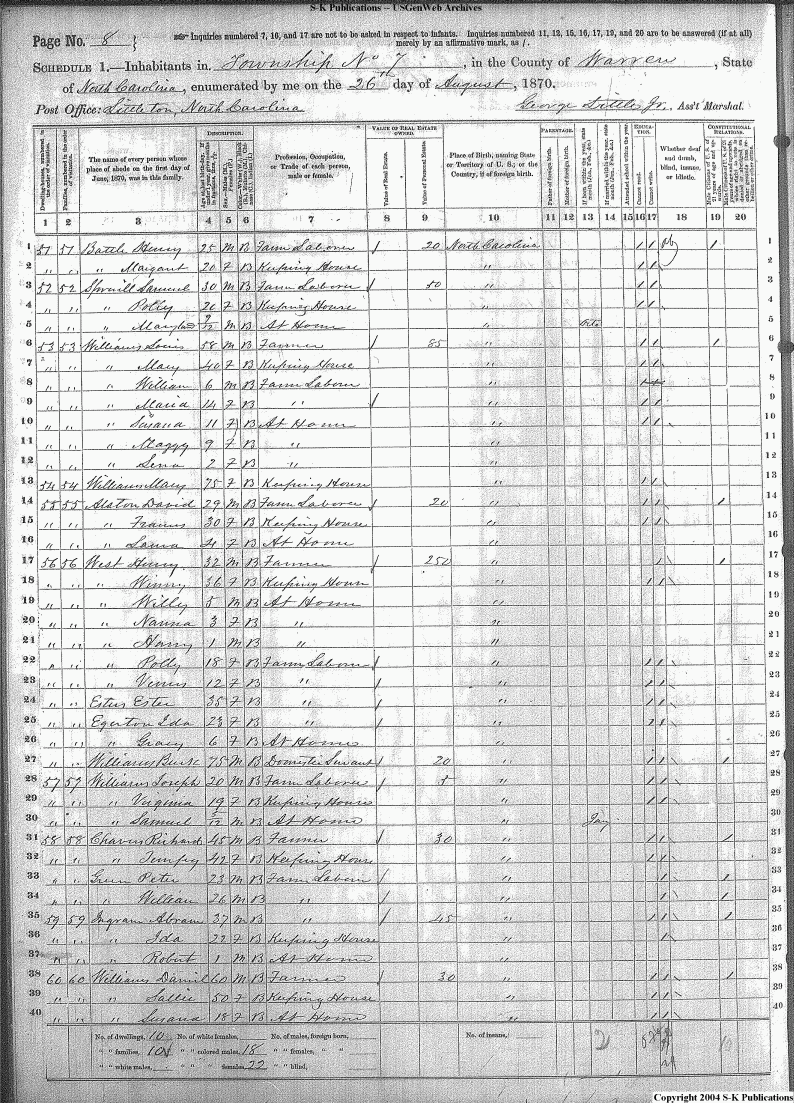 S-K Publications -- USGenWeb Archives
Page No. 8
Inquiries numbered 7, 16, and 17 are not to be asked in respect to infants. Inquiries numbered 11, 12, 15, 16, 17, 19, and 20 are to be answered (if at all) merely by an affirmative mark, as /.
Schedule 1.—Inhabitants in Township No 7, in the County of Warren, State
of North Carolina, enumerated by me on the 26th day of August, 1870.
Post Office: Littleton, North Carolina
George Little Jr, Ass't Marshal.
DESCRIPTION. VALUE OF REAL ESTATE OWNED. PARENTAGE. EDUCATION. CONSTITUTIONAL RELATIONS.
The name of every person whose place of abode on the first day of June, 1870, was in this family.
Profession, Occupation, or Trade of each person, male or female.
Value of Real Estate.
Value of Personal Estate.
Place of Birth, naming State or Territory of U. S.; or the Country, if of foreign birth.
Father of foreign birth.
Mother of foreign birth.
Attended school within the year.
Cannot read.
Cannot write.
Whether deaf and dumb, blind, insane, or idiotic.
1 2 3 4 5 6 7 8 9 10 11 12 13 14 15 16 17 18 19 20
1 51 51 Battle Henry 25 M B Farm Laborer / 20 North Carolina / / / 1
2 " " " Margant 20 F B Keeping House " / / 2
3 52 52 Spruill Samuel 30 M B Farm Laborer / 50 " / / 3
4 " " " Polly 26 F B Keeping House " / / 4
5 " " " M B At Home " 5
6 53 53 Williams Louis 58 M B Farmer / 85 " / / / 6
7 " " " Mary 40 F B Keeping House " / / 7
8 " " " William 6 M B Farm Laborer " 8
9 " " " Maria 14 F B " / " / / 9
10 " " " Susana 11 F B At Home " / / 10
11 " " " Maggy 9 F B " " 11
12 " " " Lena 2 F B " " 12
13 54 54 Williams Mary 75 F B Keeping House " / / 13
14 55 55 Alston David 29 M B Farm Laborer / 20 " / / / 14
15 " " " 30 F B Keeping House " / / 15
16 " " " Laura 4 F B At Home " 16
17 56 56 West Henry 32 M B Farmer / 250 " / / 17
18 " " " Winny 36 F B Keeping House " / / 18
19 " " " Willy 5 M B At Home " 19
20 " " " Nanna 3 F B " " 20
21 " " " Harry 1 M B " " 21
22 " " " Polly 18 F B Farm Laborer / " / / 22
23 " " " Venus 12 F B " / " / / 23
24 " " Ester 35 F B " / " / / 24
25 " " Egerton Ida 23 F B " / " / / 25
26 " " " Gracy 6 F B At Home " 26
27 " Williams 75 M B Domestic Servant 20 " / / / 27
28 57 57 Williams Joseph 20 M B Farm Laborer / 5 " / / 28
29 " " " Virginia 19 F B Keeping House " / / 29
30 " " " Samuel M B At Home " Jany 30
31 58 58 Chaves Richard 45 M B Farmer / 30 " / / / 31
32 " " " Tempy 42 F B Keeping House " / / 32
33 " " Green Peter 23 M B Farm Laborer / " / / / 33
34 " " " William 26 M B " / " / / / 34
35 59 59 Ingram Abram 37 M B " / 45 " / / / 35
36 " " " Ida 22 F B Keeping House " / 36
37 " " " Robert 1 M B At Home " 37
38 60 60 Williams Daniel 60 M B Farmer / 30 " / / / 38
39 " " " Sallie 50 F B Keeping House " / / 39
40 " " " Susana 18 F B At Home " / / 40
No. of dwellings, 10 No. of white females, No. of males, foreign born, No. of insane,
" " families, 10 " " colored males, 18 " " females, " "
" " white males, " " " females, 22 " " blind,
Copyright 2004 S-K Publications